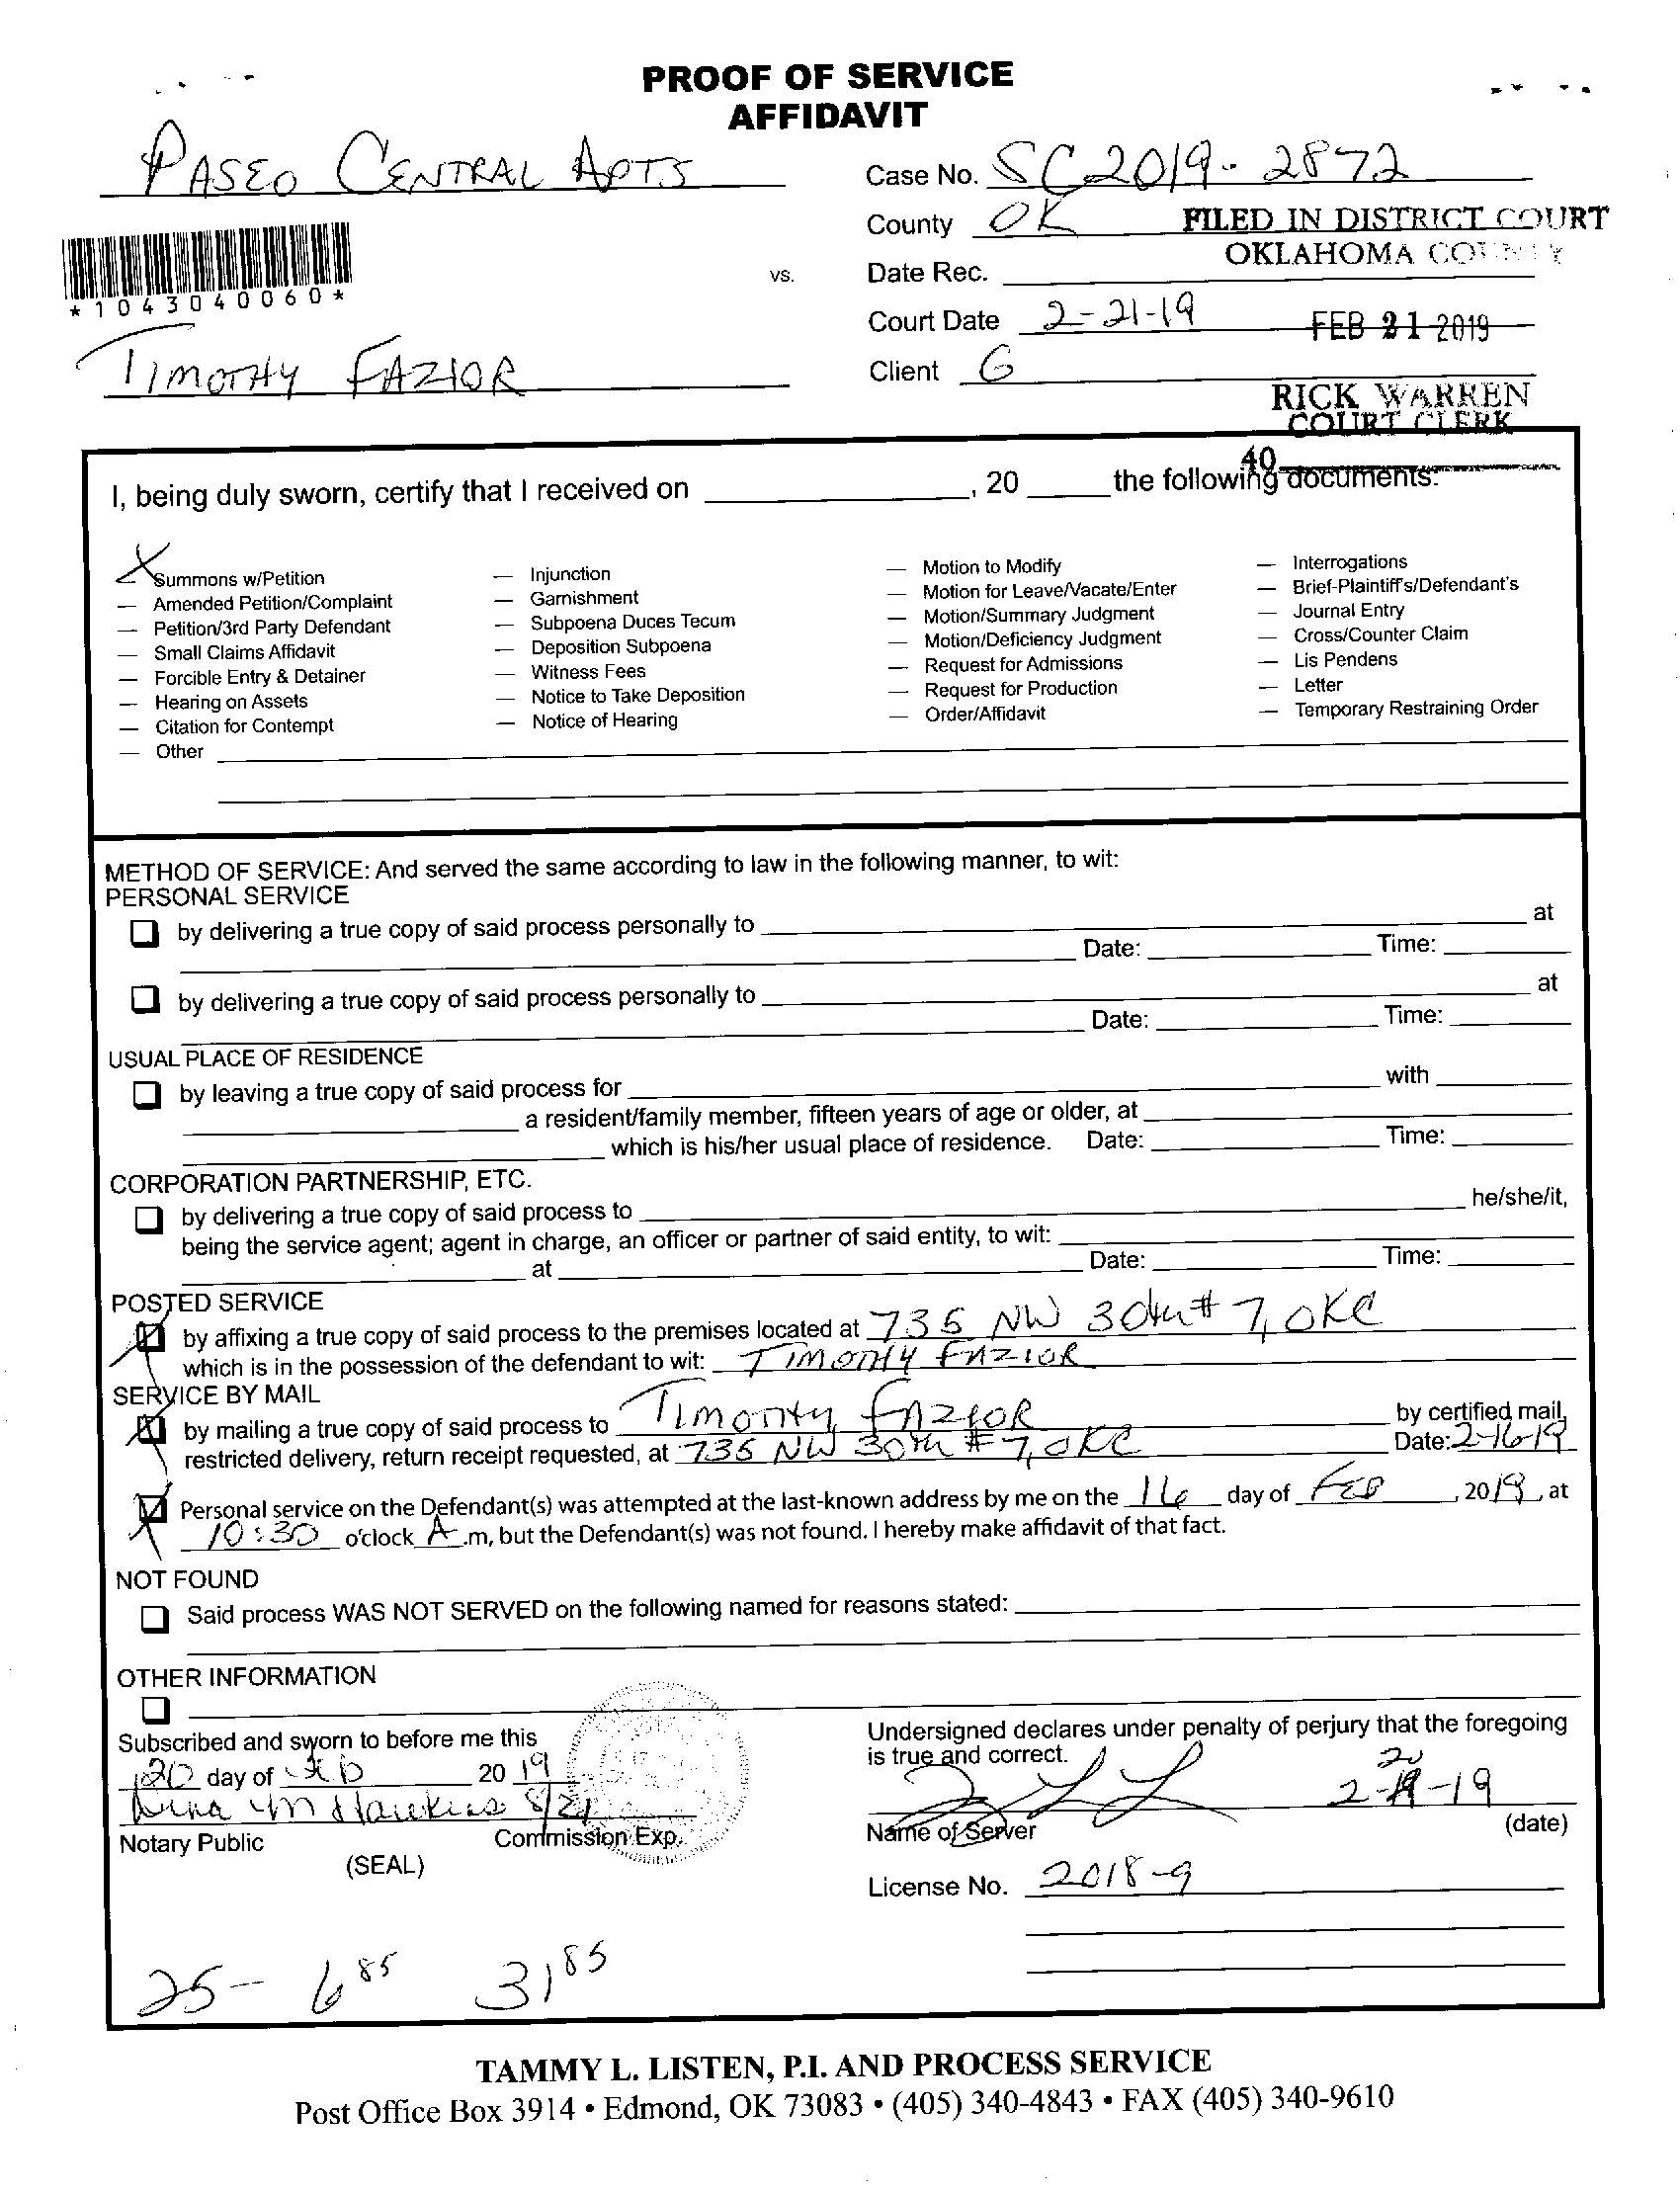 PROOF OF SERVICE
AFFIDAVIT
PASEO CENTRAL APTS
Case No. SC 2019-2872
County OK
FILED IN DISTRICT COURT
OKLAHOMA COUNTY
*1043040060*
vs.
Date Rec.
Court Date 2-21-19
FEB 21 2019
TIMOTHY FAZIOR
Client G
RICK WARREN
COURT CLERK
40
I, being duly sworn, certify that I received on ____, 20 ____ the following documents:
X Summons w/Petition
— Amended Petition/Complaint
— Petition/3rd Party Defendant
— Small Claims Affidavit
— Forcible Entry & Detainer
— Hearing on Assets
— Citation for Contempt
— Other
— Injunction
— Garnishment
— Subpoena Duces Tecum
— Deposition Subpoena
— Witness Fees
— Notice to Take Deposition
— Notice of Hearing
— Motion to Modify
— Motion for Leave/Vacate/Enter
— Motion/Summary Judgment
— Motion/Deficiency Judgment
— Request for Admissions
— Request for Production
— Order/Affidavit
— Interrogations
— Brief-Plaintiff's/Defendant's
— Journal Entry
— Cross/Counter Claim
— Lis Pendens
— Letter
— Temporary Restraining Order
METHOD OF SERVICE: And served the same according to law in the following manner, to wit:
PERSONAL SERVICE
by delivering a true copy of said process personally to ____ at
Date: ____ Time: ____
by delivering a true copy of said process personally to ____ at
Date: ____ Time: ____
USUAL PLACE OF RESIDENCE
by leaving a true copy of said process for ____ with ____
a resident/family member, fifteen years of age or older, at ____
which is his/her usual place of residence. Date: ____ Time: ____
CORPORATION PARTNERSHIP, ETC.
by delivering a true copy of said process to ____ he/she/it,
being the service agent; agent in charge, an officer or partner of said entity, to wit: ____
at ____ Date: ____ Time: ____
POSTED SERVICE
by affixing a true copy of said process to the premises located at 735 NW 30th # 7, OKC
which is in the possession of the defendant to wit: TIMOTHY FAZIOR
SERVICE BY MAIL
by mailing a true copy of said process to TIMOTHY FAZIOR by certified mail,
restricted delivery, return receipt requested, at 735 NW 30th # 7, OKC Date: 2-16-19
Personal service on the Defendant(s) was attempted at the last-known address by me on the 16 day of FEB, 2019, at
10:30 o'clock A.m, but the Defendant(s) was not found. I hereby make affidavit of that fact.
NOT FOUND
Said process WAS NOT SERVED on the following named for reasons stated:
OTHER INFORMATION
Subscribed and sworn to before me this
20 day of Feb 2019
Nina M Hawkins 8/21
Notary Public Commission Exp.
(SEAL)
Undersigned declares under penalty of perjury that the foregoing
is true and correct.
20
2-19-19
Name of Server (date)
License No. 2018-9
25— 6 85 31 85
TAMMY L. LISTEN, P.I. AND PROCESS SERVICE
Post Office Box 3914 • Edmond, OK 73083 • (405) 340-4843 • FAX (405) 340-9610